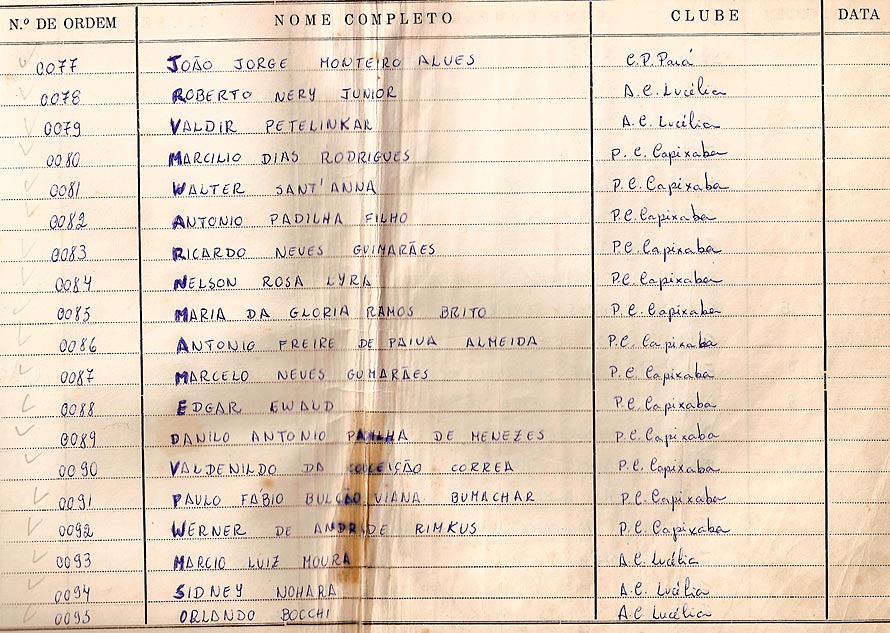 N.º DE ORDEM NOME COMPLETO CLUBE DATA
0077 JOÃO JORGE MONTEIRO ALVES C.P. Pará
0078 ROBERTO NERY JUNIOR A.C. Lucélia
0079 VALDIR PETELINKAR A.C. Lucélia
0080 MARCILIO DIAS RODRIGUES P.C. Capixaba
0081 WALTER SANT'ANNA P.C. Capixaba
0082 ANTONIO PADILHA FILHO P.C. Capixaba
0083 RICARDO NEVES GUIMARÃES P.C. Capixaba
0084 NELSON ROSA LYRA P.C. Capixaba
0085 MARIA DA GLORIA RAMOS BRITO P.C. Capixaba
0086 ANTONIO FREIRE DE PAIVA ALMEIDA P.C. Capixaba
0087 MARCELO NEVES GUMARÃES P.C. Capixaba
0088 EDGAR EWALD P.C. Capixaba
0089 DANILO ANTONIO DE MENEZES P.C. Capixaba
0090 VALDENILDO DA CORREA P.C. Capixaba
0091 PAULO FABIO BULCÃO VIANA BUMACHAR P.C. Capixaba
0092 WERNER DE ANDRADE RIMKUS P.C. Capixaba
0093 MARCIO LUIZ MOURA A.C. Lucélia
0094 SIDNEY NOHARA A.C. Lucélia
0095 ORLANDO BOCCHI A.C. Lucélia